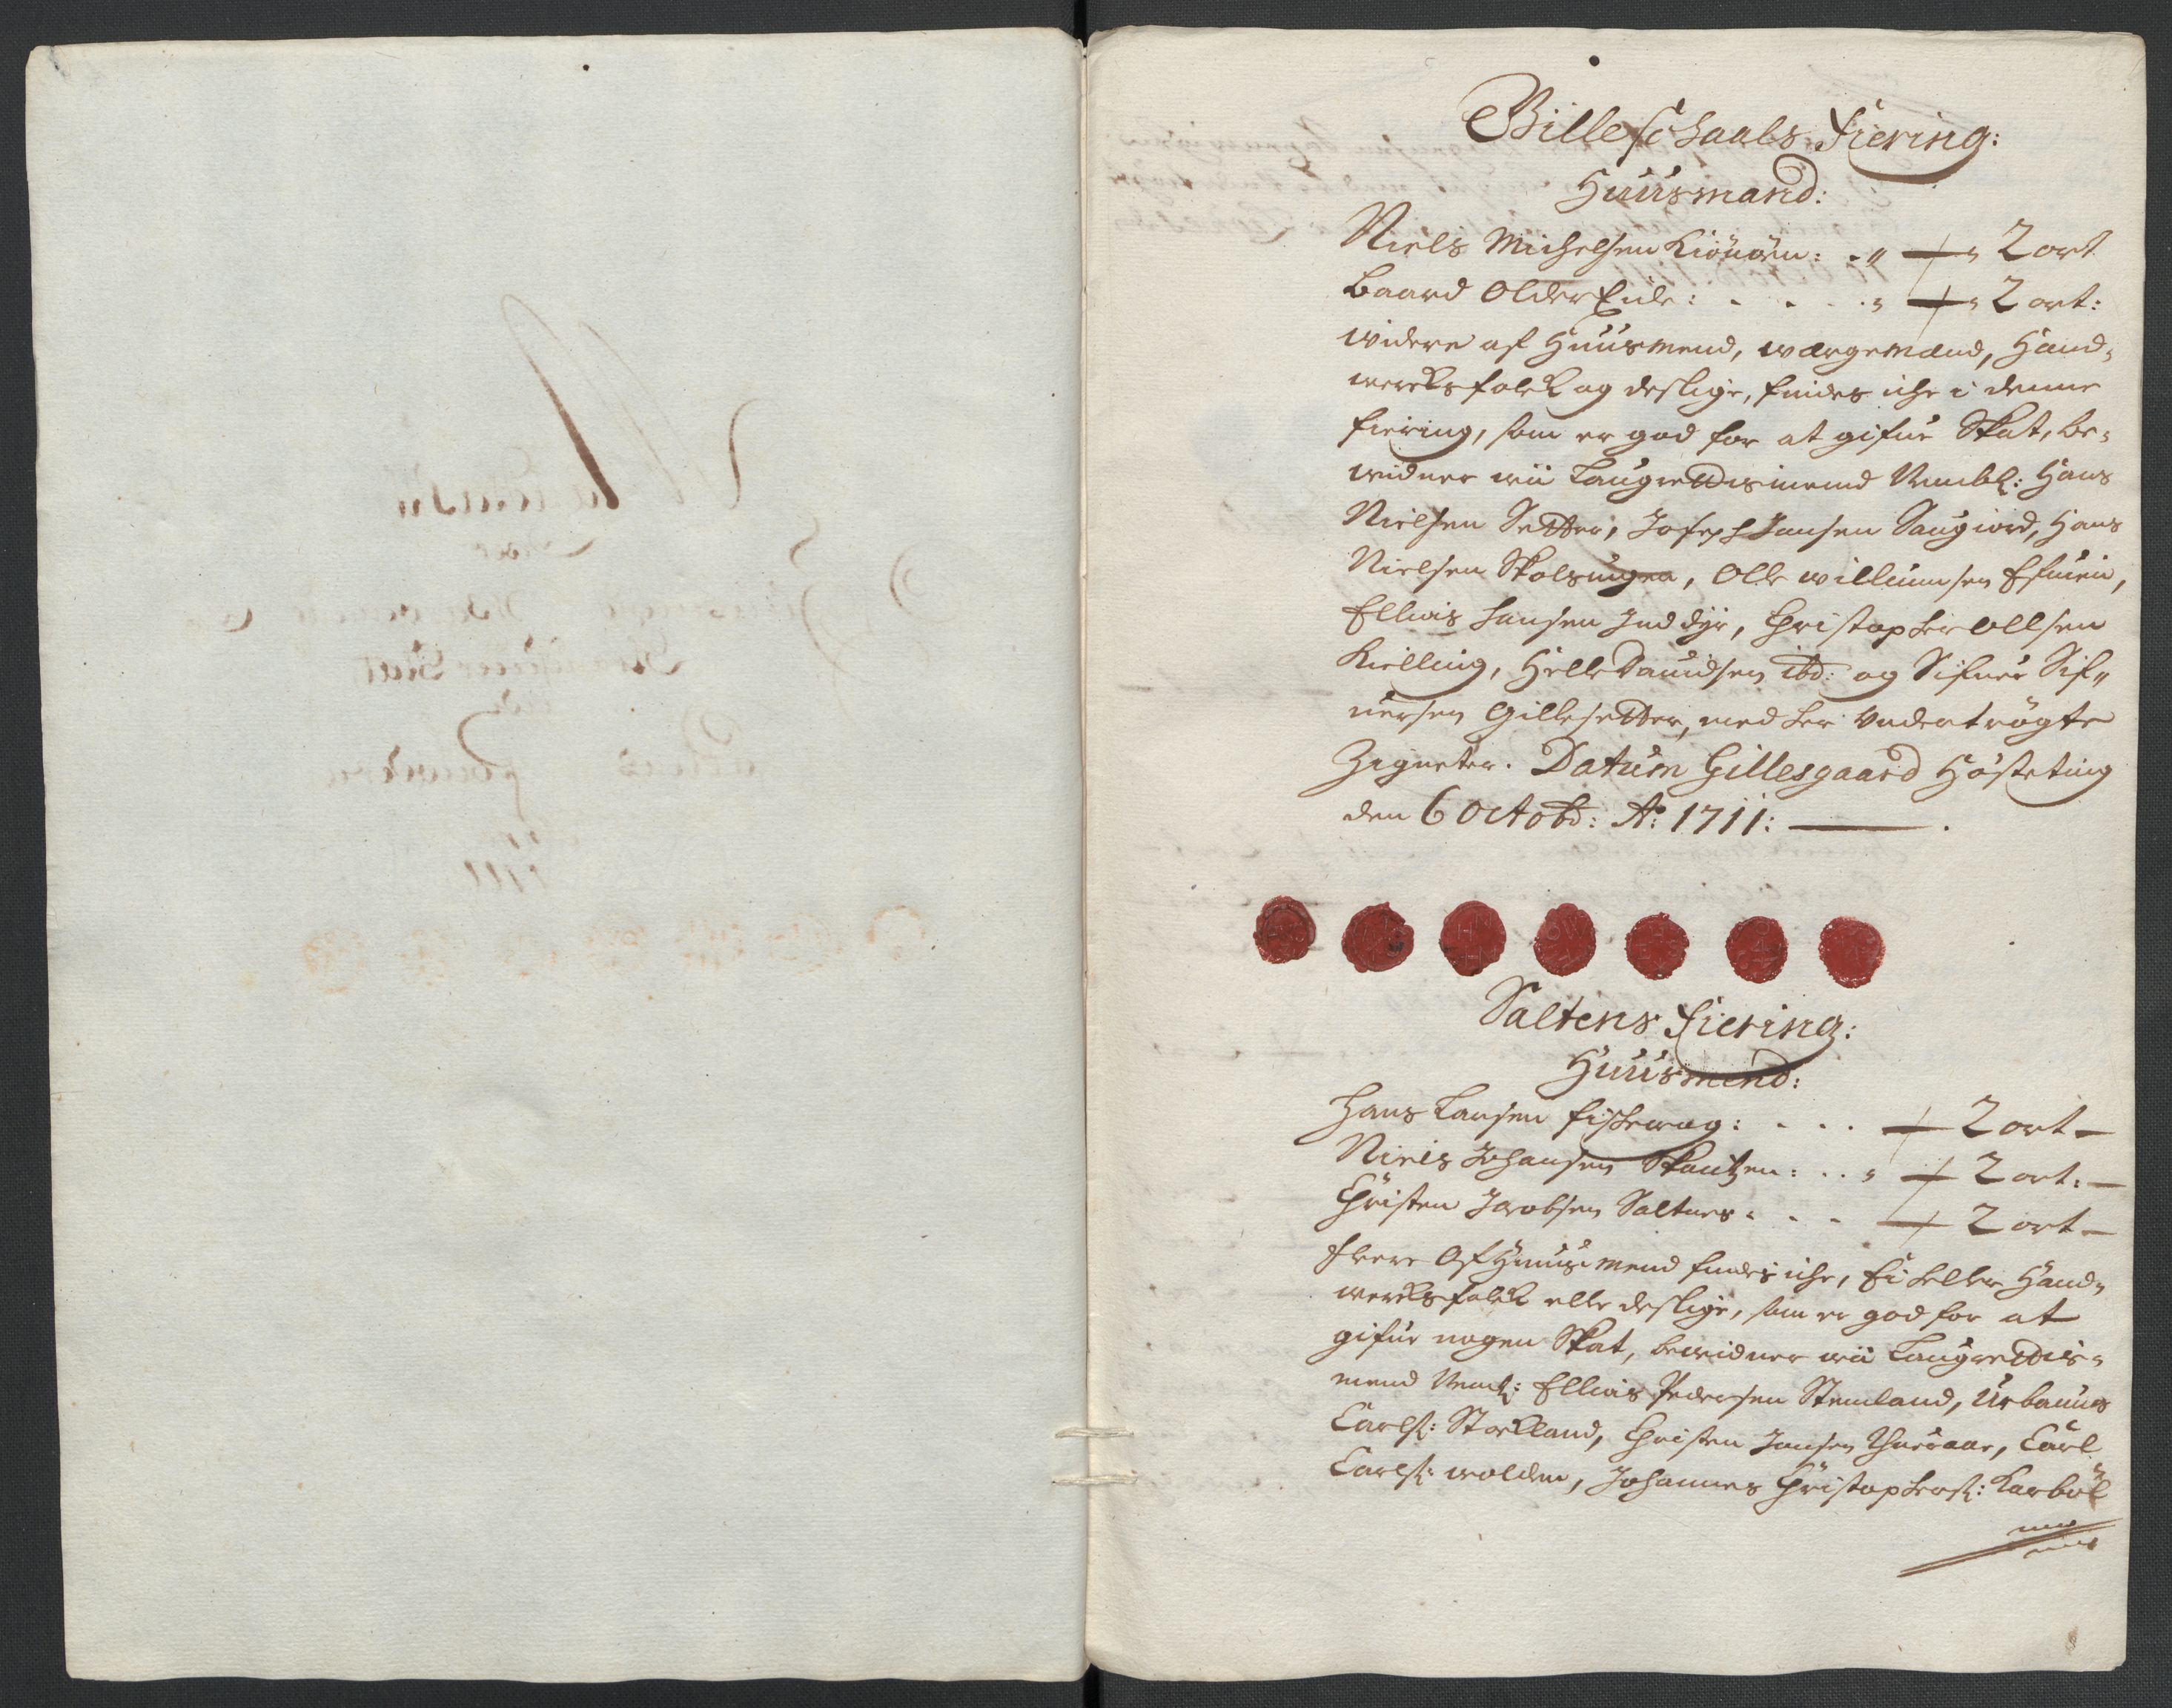 Billeschaals Fiering:
Huusmand:
Niels Michelsen Kiönöen: . " — " 2 ort
Baard Older Eide: . . . " — " 2 ort:
widere af Huusmend, wærgemænd, Hand-
wercksfolck og deslige, findes iche i denne
fiering, som er god for at gifue Skat, be-
widner wii Laugrettismend Nembl: Hans
Nielsen Setter, Joseph Jansen Saugiord, Hans
Nielsen Skolsungen, Olle Willumsen
Ellias Hansen Inddÿr, Christopher Ollsen
Kielling, Helle Dauidsen ibd: og Sifuer Sif-
uersen Gillesetter, med her undertrögte
Zigneter. Datum Gillesgaard Hösteting
den 6 Octobr: Ao: 1711: —
Saltens Fiering:
Huusmend:
Hans Larsen Fiskewag: . . . — 2 ort —
Niels Johansen Skautzen: . . " — 2 ort: —
Christen Jacobsen Saltnes: . . — 2 ort —
flere Af Huusmend findes iche, Ei heller Hand-
wercksfolck elle deslige, som er god for at
gifue nogen Skat, bewidner wii Laugrettis-
mend Neml: Ellias Pedersen Stemland, Urbanus
Carls: Storland, Christen Jansen Carl
Carls: wolden, Johannes Christophers: Karböl